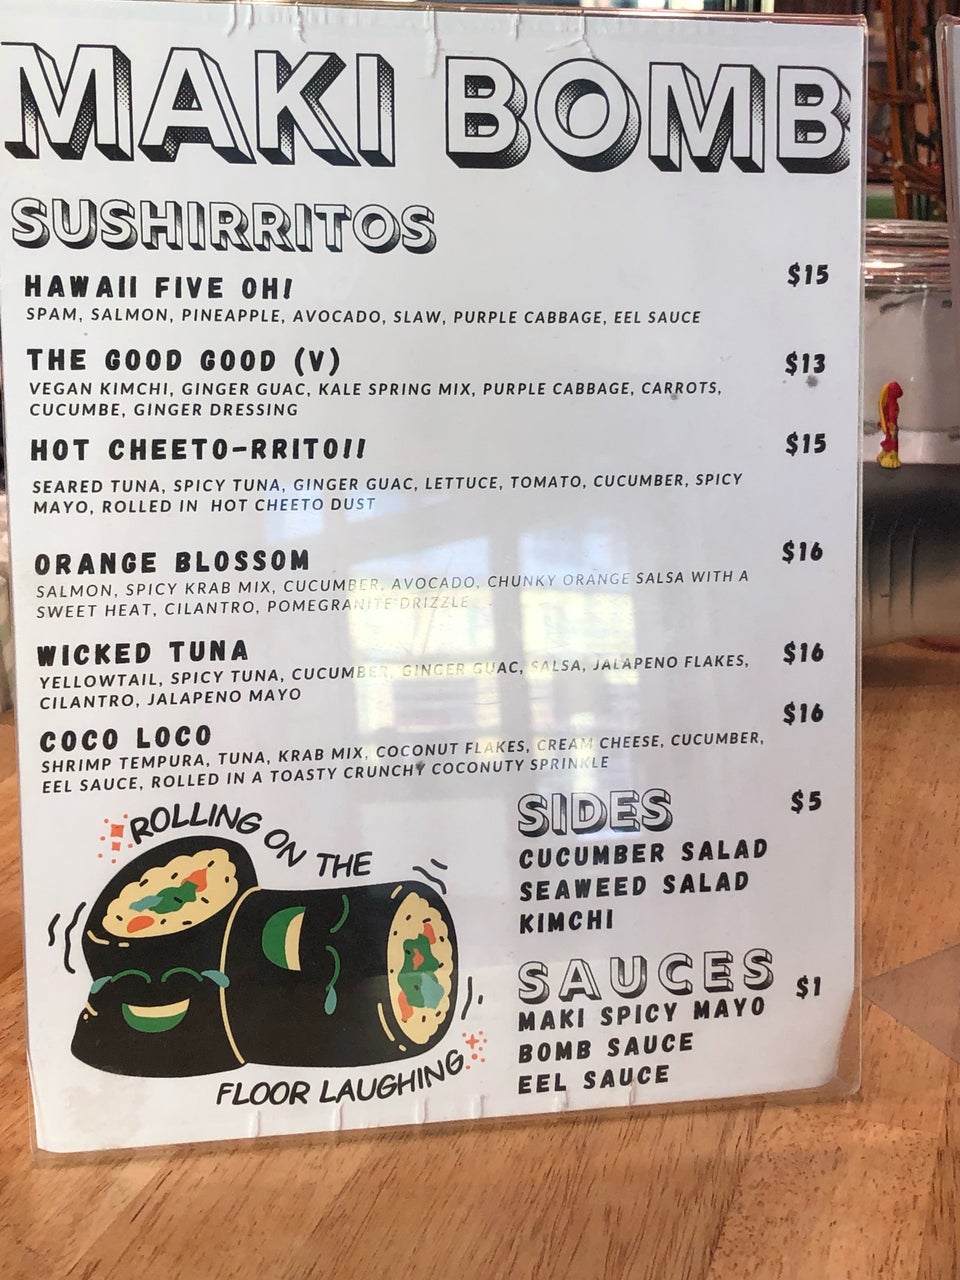 MAKI BOMB
SUSHIRRITOS
HAWAII FIVE OH! $15
SPAM, SALMON, PINEAPPLE, AVOCADO, SLAW, PURPLE CABBAGE, EEL SAUCE
THE GOOD GOOD (V) $13
VEGAN KIMCHI, GINGER GUAC, KALE SPRING MIX, PURPLE CABBAGE, CARROTS,
CUCUMBE, GINGER DRESSING
HOT CHEETO-RRITO!! $15
SEARED TUNA, SPICY TUNA, GINGER GUAC, LETTUCE, TOMATO, CUCUMBER, SPICY
MAYO, ROLLED IN HOT CHEETO DUST
ORANGE BLOSSOM $16
SALMON, SPICY KRAB MIX, CUCUMBER, AVOCADO, CHUNKY ORANGE SALSA WITH A
SWEET HEAT, CILANTRO, POMEGRANITE DRIZZLE
WICKED TUNA $16
YELLOWTAIL, SPICY TUNA, CUCUMBER, GINGER GUAC, SALSA, JALAPENO FLAKES,
CILANTRO, JALAPENO MAYO
COCO LOCO $16
SHRIMP TEMPURA, TUNA, KRAB MIX, COCONUT FLAKES, CREAM CHEESE, CUCUMBER,
EEL SAUCE, ROLLED IN A TOASTY CRUNCHY COCONUTY SPRINKLE
ROLLING ON THE
FLOOR LAUGHING
SIDES $5
CUCUMBER SALAD
SEAWEED SALAD
KIMCHI
SAUCES $1
MAKI SPICY MAYO
BOMB SAUCE
EEL SAUCE